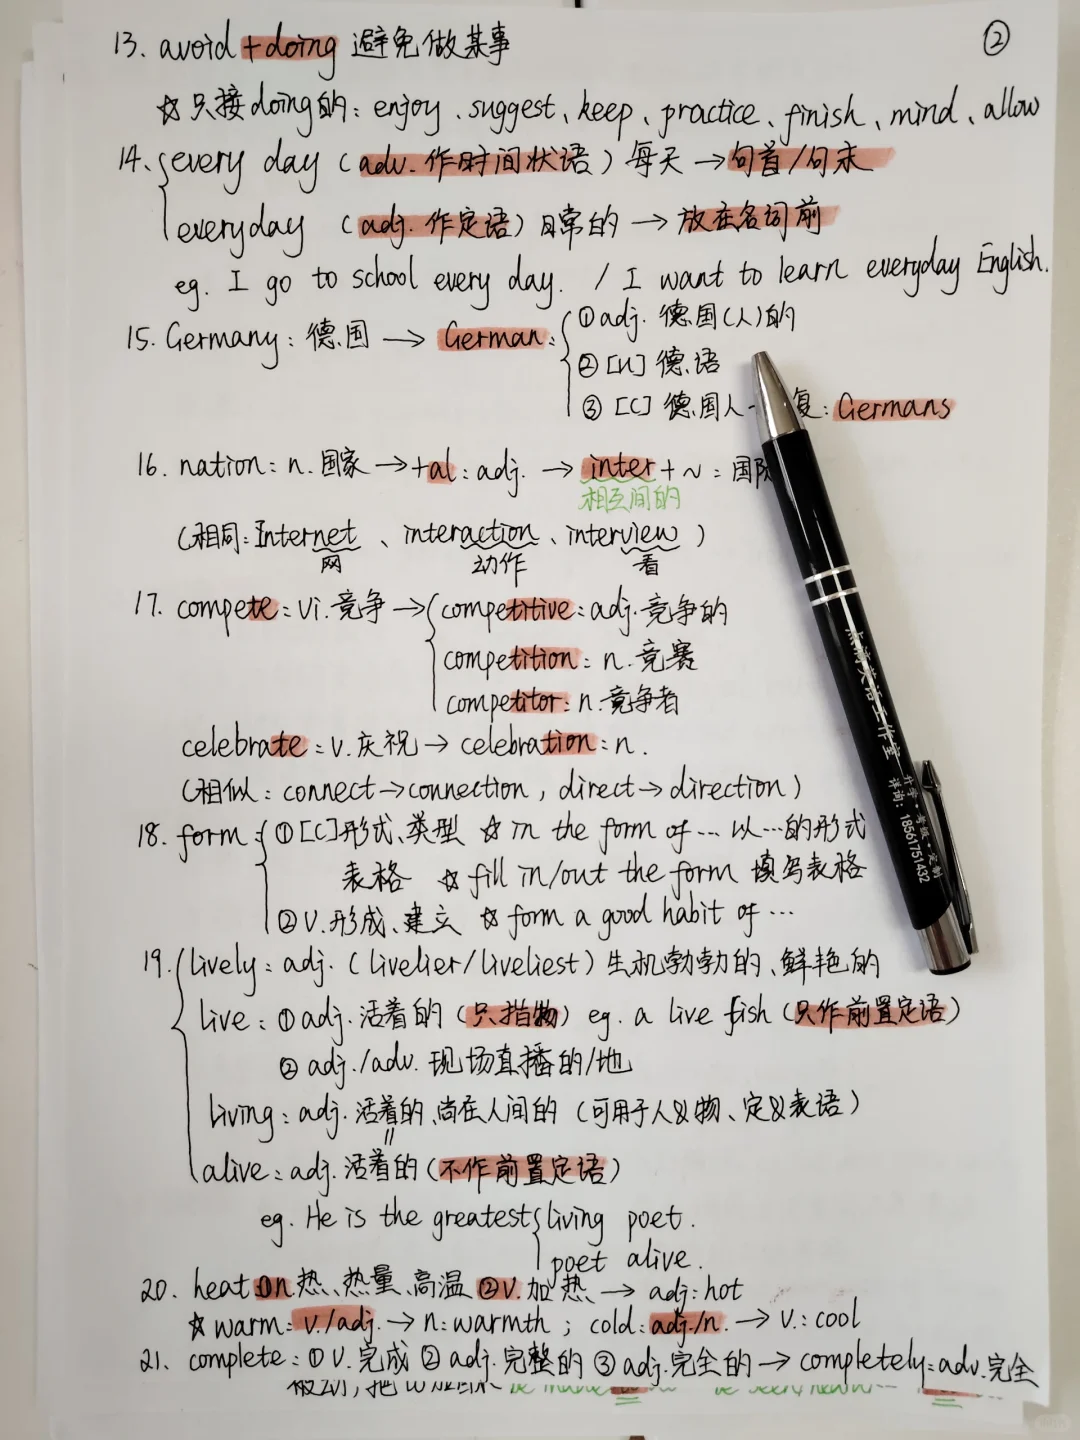 ②
13. avoid +doing 避免做某事
☆只接doing的: enjoy、suggest、keep、practice、finish、mind、allow
14. every day (adv. 作时间状语) 每天 →句首/句末
everyday (adj. 作定语) 日常的 → 放在名词前
eg. I go to school every day. / I want to learn everyday English.
15. Germany: 德国 → German:
①adj. 德国(人)的
②[U] 德语
③ [C] 德国人 复: Germans
16. nation: n. 国家 → +al: adj. → inter + ~ : 国际
相互间的
(相同: Internet、interaction、interview)
网 动作 看
17. compete: vi. 竞争 → competitive: adj. 竞争的
competition: n. 竞赛
competitor: n. 竞争者
celebrate: v. 庆祝 → celebration: n.
(相似: connect→connection, direct→direction)
18. form ①[C]形式、类型 ☆ in the form of … 以…的形式
表格 ☆ fill in/out the form 填写表格
②v. 形成、建立 ☆ form a good habit of …
19. lively: adj. (livelier/liveliest) 生机勃勃的、鲜艳的
live: ①adj. 活着的 (只指物) eg. a live fish (只作前置定语)
② adj./adv. 现场直播的/地
living: adj. 活着的、尚在人间的 (可用于人及物、定及表语)
=
alive: adj. 活着的 (不作前置定语)
eg. He is the greatest living poet.
poet alive.
20. heat ①n 热、热量、高温 ②v. 加热 → adj: hot
☆ warm: v./adj. → n: warmth ; cold: adj./n. → v.: cool
21. complete: ①v. 完成 ②adj. 完整的 ③adj. 完全的 → completely: adv. 完全
点滴英语工作室
升学·考级·定制
详询: 18561751432